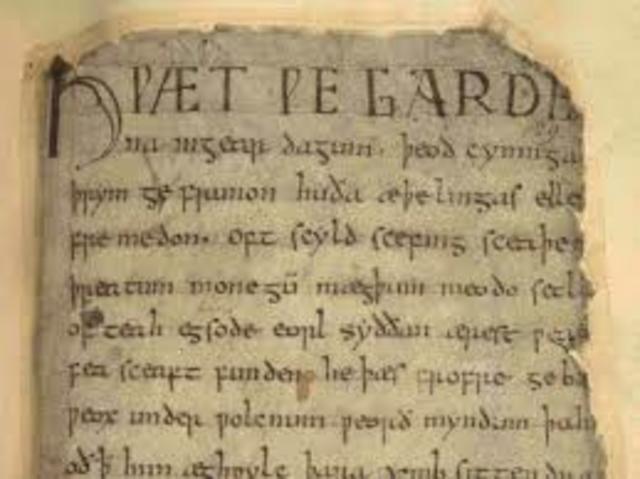 HǷÆT ǷE GARDE
na ingear dagum. þeod cyninga
þrym ge frunon huða æþelingas elle
fre medon. oft scyld scefing sceaþe
þreatum monegū mægþum meodo setla
of teah egsode eorl syððan ærest ƿear
fea sceaft funden he þæs frofre geba
ƿeox under ƿolcnum ƿeorð myndum þah
oð þ him æghƿylc þara ymb sittendra